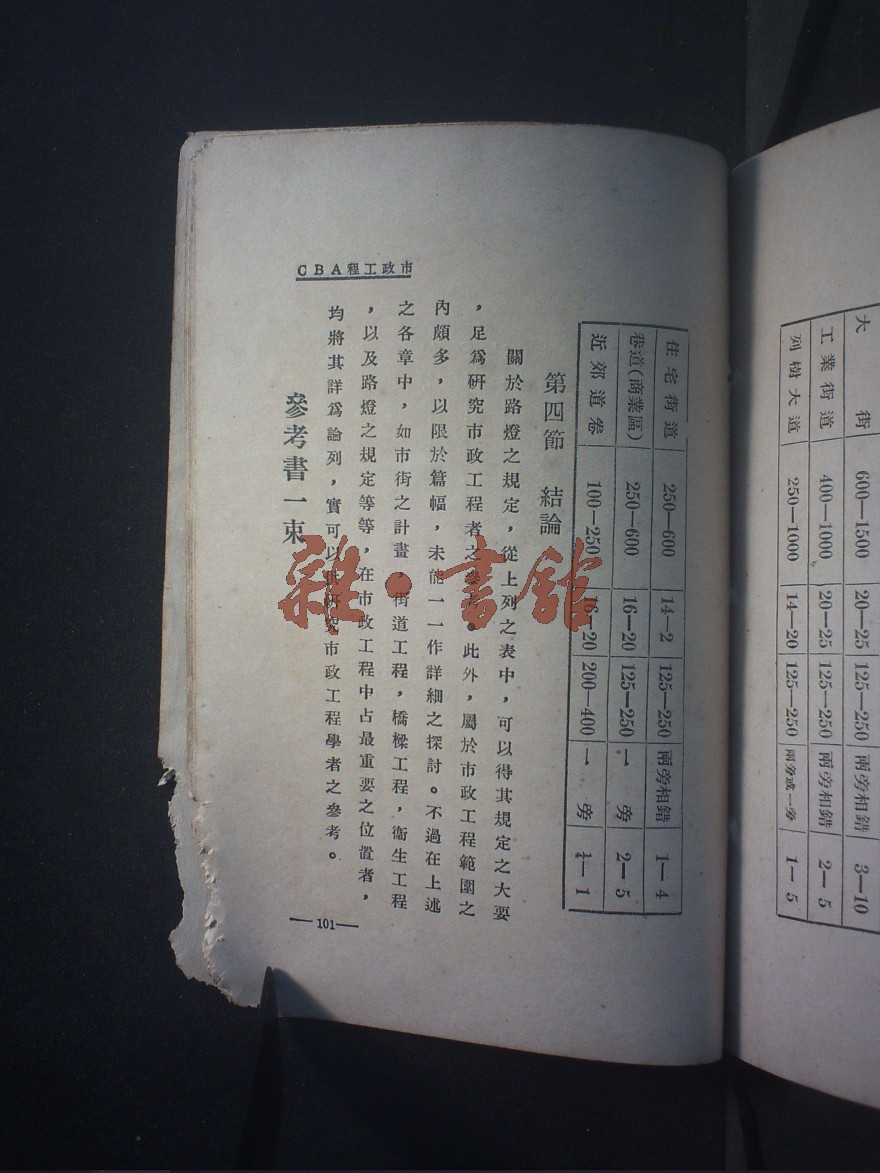 大街 600—1500 20—25 125—250 兩旁相錯 3—10
工業街道 400—1000 20—25 125—250 兩旁相錯 2—5
列樹大道 250—1000 14—20 125—250 兩旁或一旁 1—5
住宅街道 250—600 14—2 125—250 兩旁相錯 1—4
巷道(商業區) 250—600 16—20 125—250 一旁 2—5
近郊道卷 100—250 16—20 200—400 一旁 —1
第四節 結論
關於路燈之規定，從上列之表中，可以得其規定之大要
，足爲研究市政工程者之參考。此外，屬於市政工程範圍之
內頗多，以限於篇幅，未能一一作詳細之探討。不過在上述
之各章中，如市街之計畫，街道工程，橋樑工程，衞生工程
，以及路燈之規定等等，在市政工程中占最重要之位置者，
均將其詳爲論列，實可以供研究市政工程學者之參考。
參考書一束
市政工程ABC
—101—
雜·書館